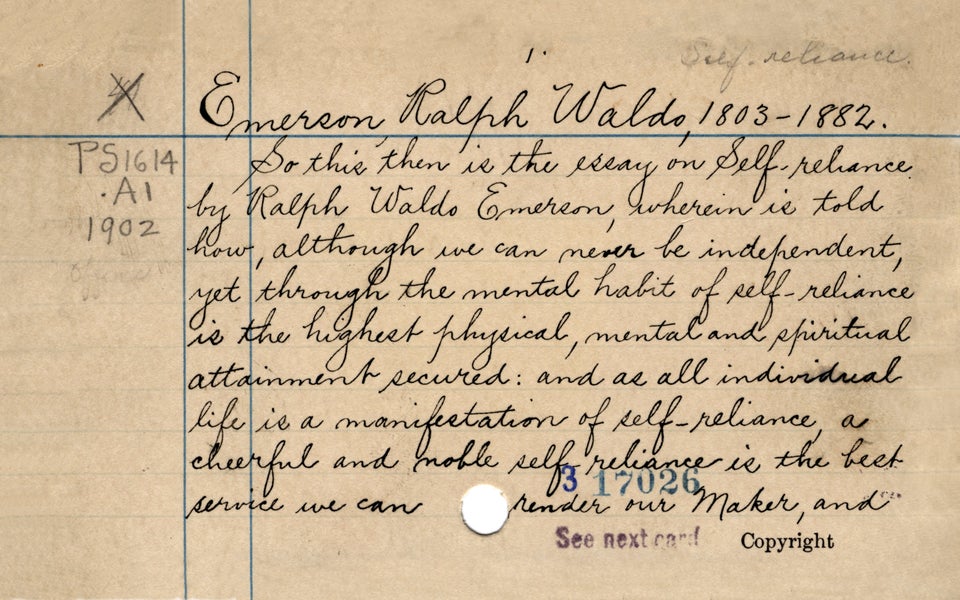 1.
Self-reliance.
Emerson, Ralph Waldo, 1803-1882.
PS1614
.A1
1902
So this then is the essay on Self-reliance
by Ralph Waldo Emerson, wherein is told
how, although we can never be independent,
yet through the mental habit of self-reliance
is the highest physical, mental and spiritual
attainment secured: and as all individual
life is a manifestation of self-reliance, a
cheerful and noble self-reliance is the best
service we can render our Maker, and
3 17026
See next card
Copyright